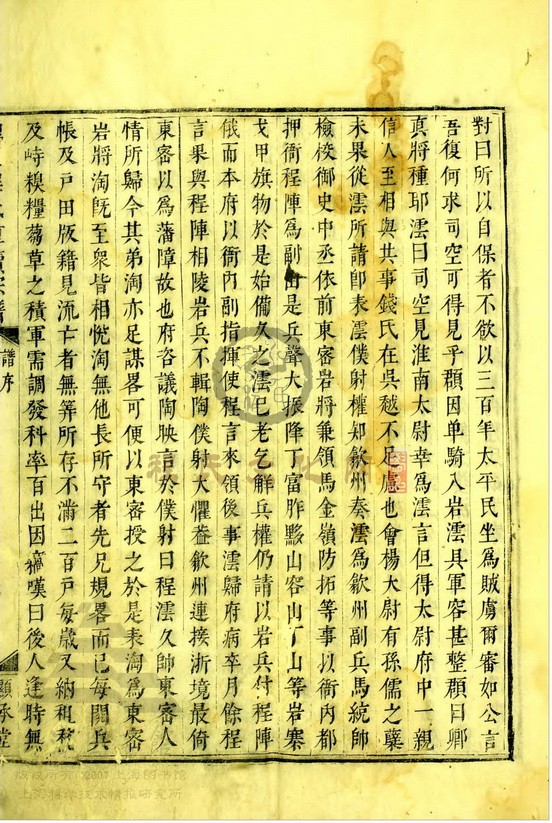 對曰所以自保者不欲以三百年太平民坐爲賊虜爾審如公言
吾復何求司空可得見乎頵因单騎入岩澐具軍容甚整頵曰卿
真將種耶澐曰司空見淮南太尉幸爲澐言但得太尉府中一親
信人至相與共事錢氏在吳越不足慮也會楊大尉有孫儒之㜸
未果從澐所請即表澐僕射權知歙州奏澐爲歙州副兵馬統師
檢校御史中丞依前東密岩將兼領馬金嶺防拓等事以衙内都
押衙程陣爲副由是兵聲大振降丁富胙黟山容山丁山等岩寨
戈甲旗物於是始備久之澐已老乞觧兵權仍請以岩兵付程陣
俄而本府以衙内副指揮使程言來領後事澐歸府病卒月餘程
言果與程陣相陵岩兵不輯陶僕射大懼葢歙州連接浙境最倚
東密以爲藩障故也府咨議陶映言於僕射曰程澐久師東密人
情所歸今其弟淘亦足謀畧可便以東密授之於是表淘爲東密
岩將淘旣至衆皆相恱淘無他長所守者先兄規畧而已每閱兵
帳及戸田版籍見流亡者無筭所存不滿二百戸每歲又納租稅
及峙糗糧芻草之積軍需調發科率百出因嘆曰後人逢時無
譜序
顯承堂
版权所有 2007 上海图书馆
上海科学技术情报研究所